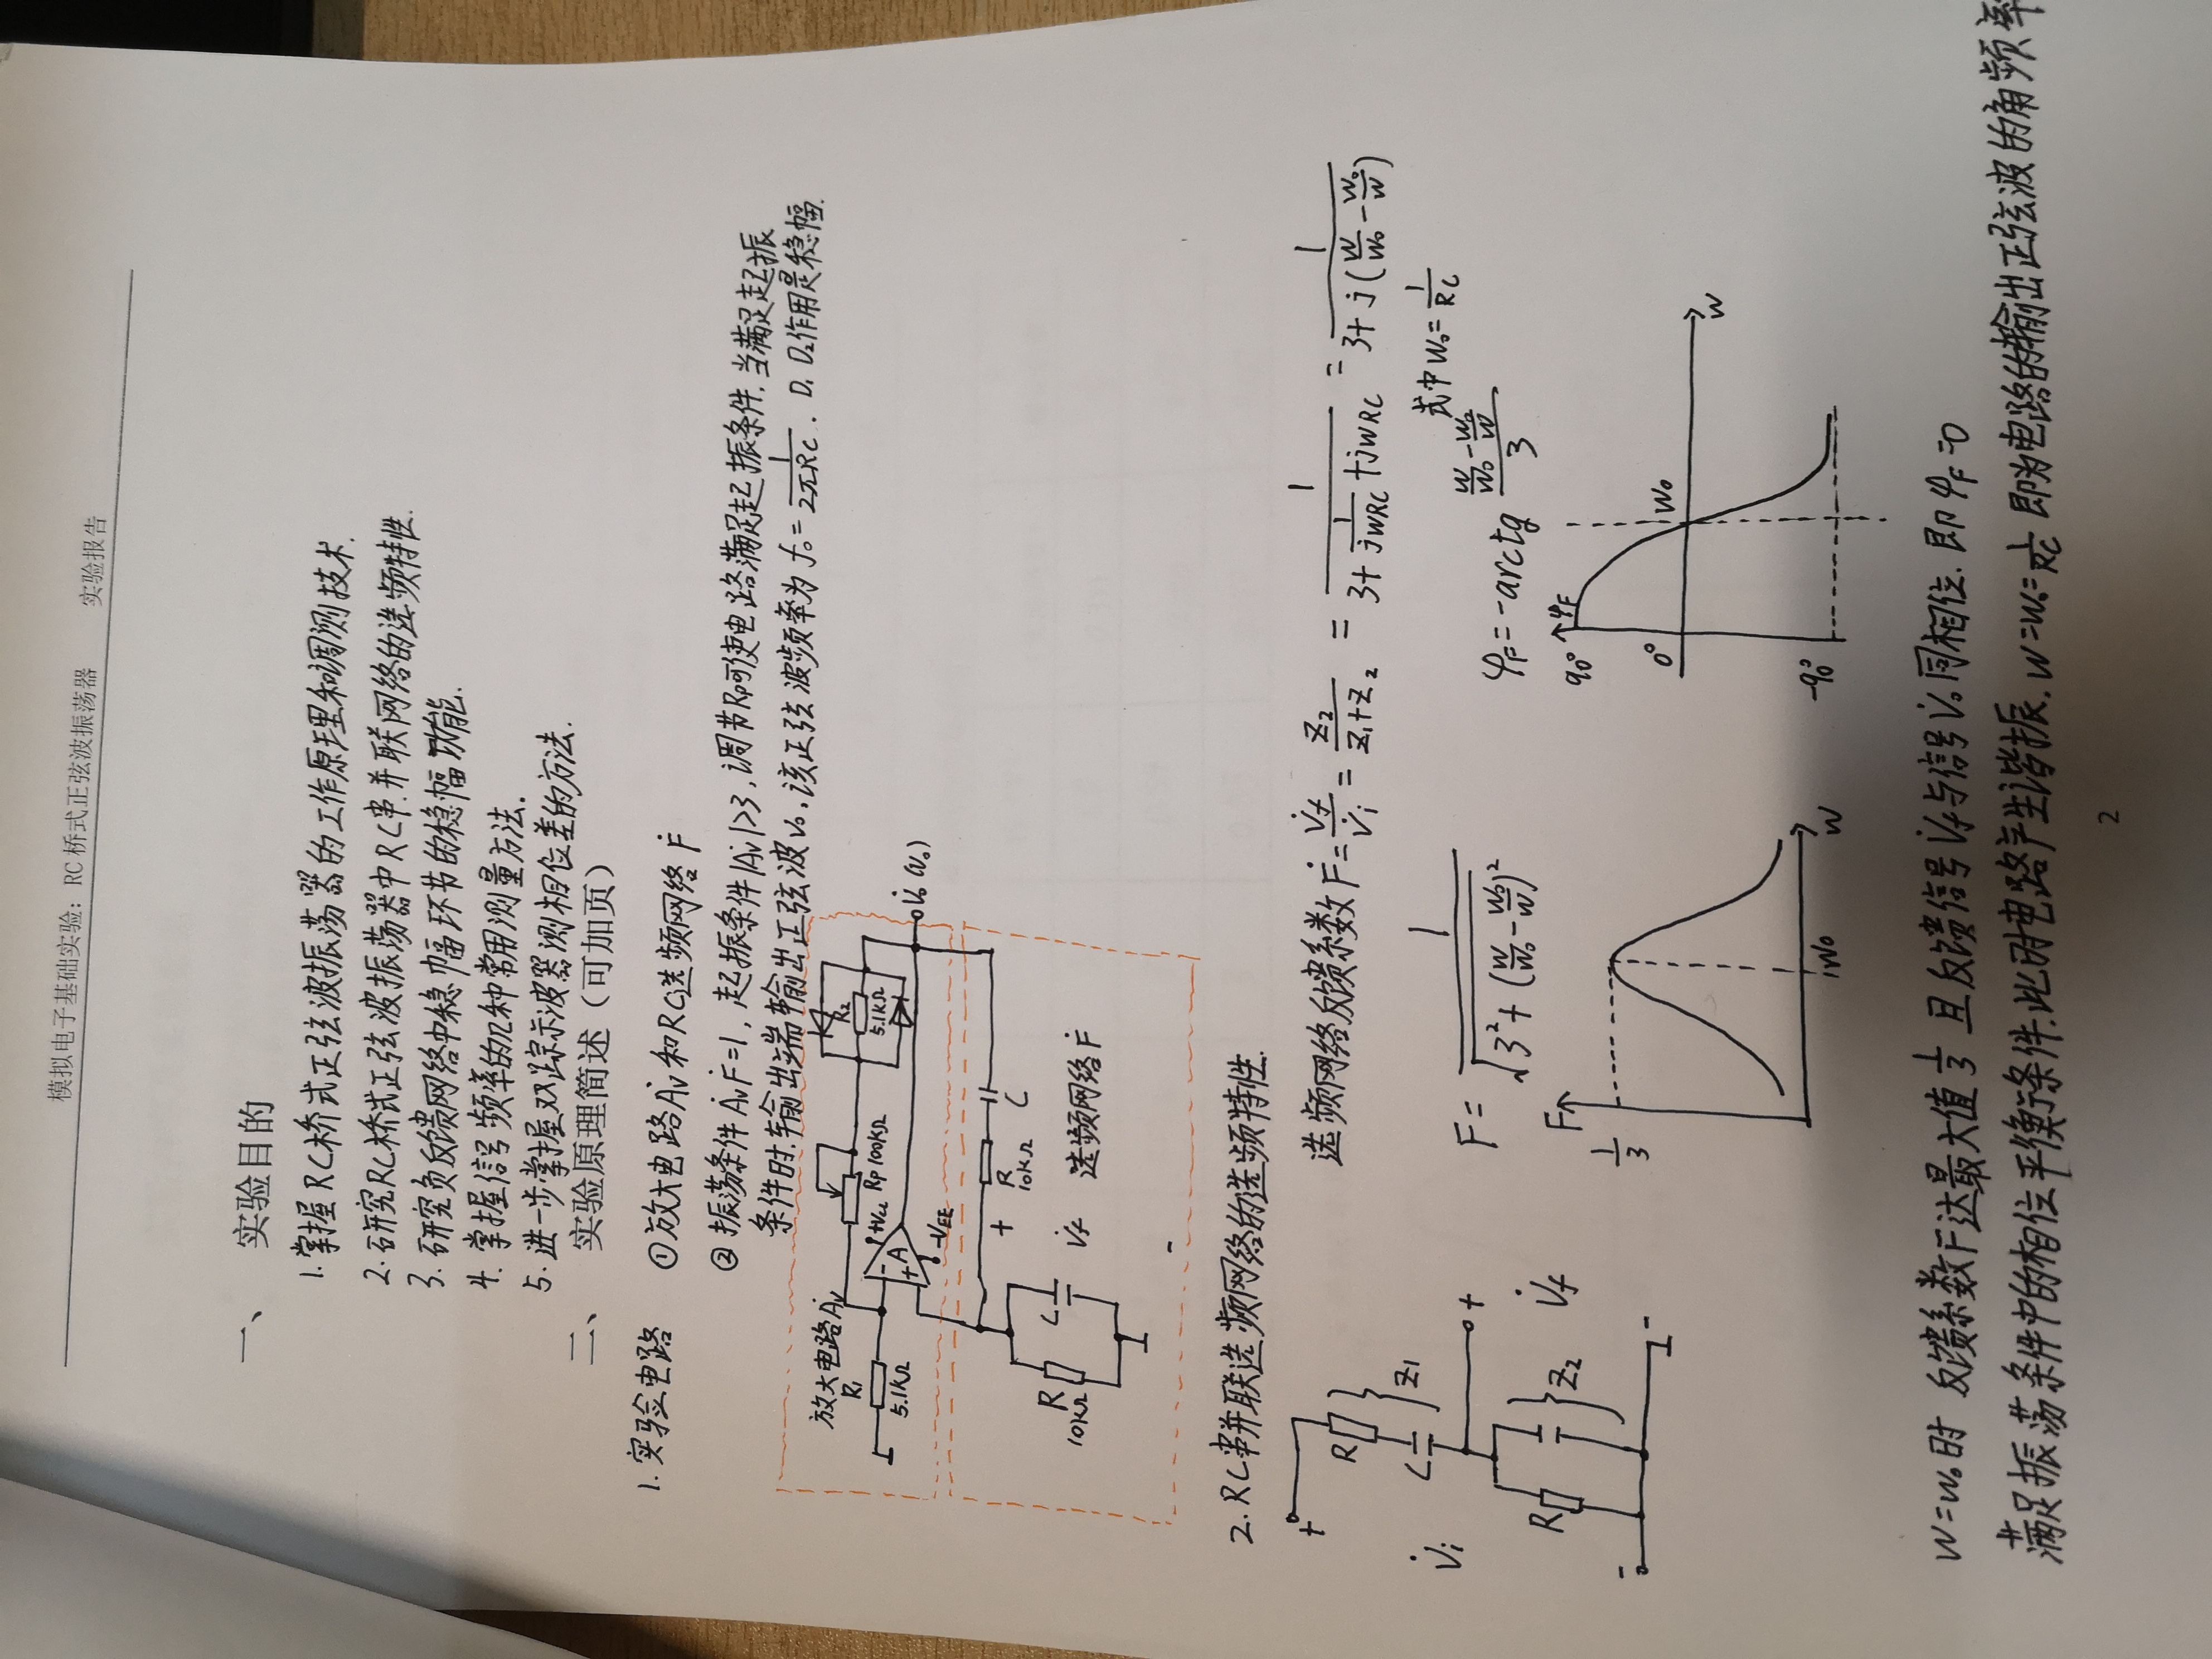 模拟电子基础实验：RC桥式正弦波振荡器 实验报告
一、 实验目的
1. 掌握RC桥式正弦波振荡器的工作原理和调测技术.
2. 研究RC桥式正弦波振荡器中RC串并联网络的选频特性.
3. 研究负反馈网络中稳幅环节的稳幅功能.
4. 掌握信号频率的几种常用测量方法.
5. 进一步掌握双踪示波器测相位差的方法.
二、 实验原理简述（可加页）
1. 实验电路 ①放大电路Av̇和RC选频网络Ḟ
②振荡条件 ȦvḞ=1, 起振条件|Av|>3, 调节Rp可使电路满足起振条件. 当满足起振
条件时.输出端输出正弦波v₀, 该正弦波频率为 f₀=1/(2πRC). D₁ D₂作用是稳幅.
放大电路Av̇
R₁
5.1kΩ
Rp 100kΩ
R₂
5.1kΩ
+Vcc
- + A
-VEE
V̇₀(v₀)
R
10kΩ
C
+
R
10kΩ
C
V̇f
选频网络Ḟ
-
2. RC串并联选频网络的选频特性.
选频网络反馈系数Ḟ=V̇f/V̇i=Z₂/(Z₁+Z₂)=1/(3+1/(jwRC)+jwRC)=1/(3+j(w/w₀-w₀/w))
式中w₀=1/RC
+
V̇i
R
C
Z₁
+
R
Z₂
V̇f
-
-
F=1/√(3²+(w/w₀-w₀/w)²)
φF=-arctg (w/w₀-w₀/w)/3
F
1/3
w₀
w
φF
90°
0°
-90°
w₀
w
w=w₀时 反馈系数F达最大值1/3 且反馈信号V̇f与信号V̇₀同相位. 即φF=0
满足振荡条件中的相位平衡条件.此时电路产生谐振. w=w₀=1/RC 即为电路的输出正弦波的角频率
2